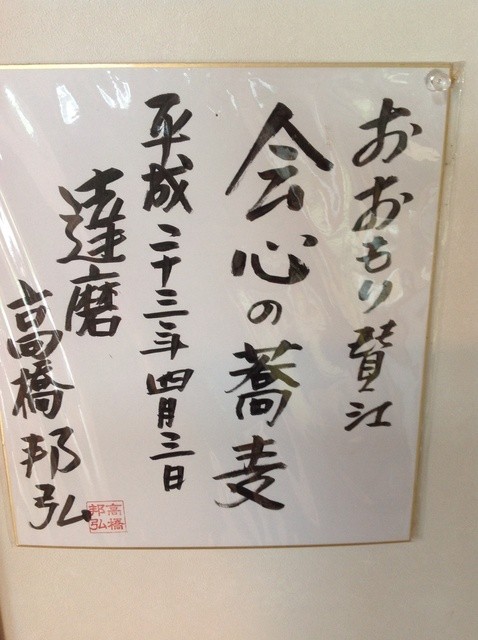 おおもり賛江
会心の蕎麦
平成二十三年四月三日
達磨
高橋邦弘
高橋
邦弘